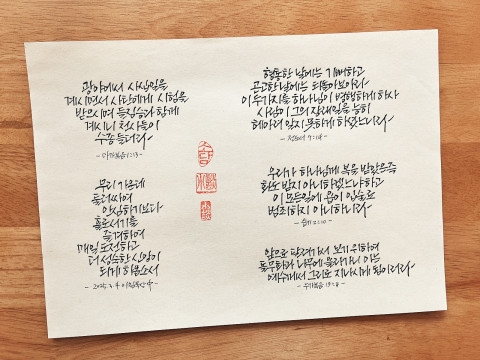 광야에서 사십일을
계시면서 사탄에게 시험을
받으시며 들짐승과 함께
계시니 천사들이
수종들더라
- 마가복음 1:13 -
무리 가운데
둘러싸여
안심하기보다
홀로서기를
즐겨하여
매일 도전하고
더 성숙한 신앙이
되게 하옵소서
형통한 날에는 기뻐하고
곤고한 날에는 되돌아보아라
이 두가지를 하나님이 병행하게 하사
사람이 그의 장래일을 능히
헤아려 알지 못하게 하셨느니라
- 전도서 7:14 -
우리가 하나님께 복을 받았은즉
화도 받지 아니하겠느냐 하고
이 모든일에 욥이 입술로
범죄하지 아니하니라
- 욥기 2:10 -
앞으로 달려가서 보기 위하여
돌무화과나무에 올라가니 이는
예수께서 그리로 지나시게 됨이러라
- 누가복음 19:4 -